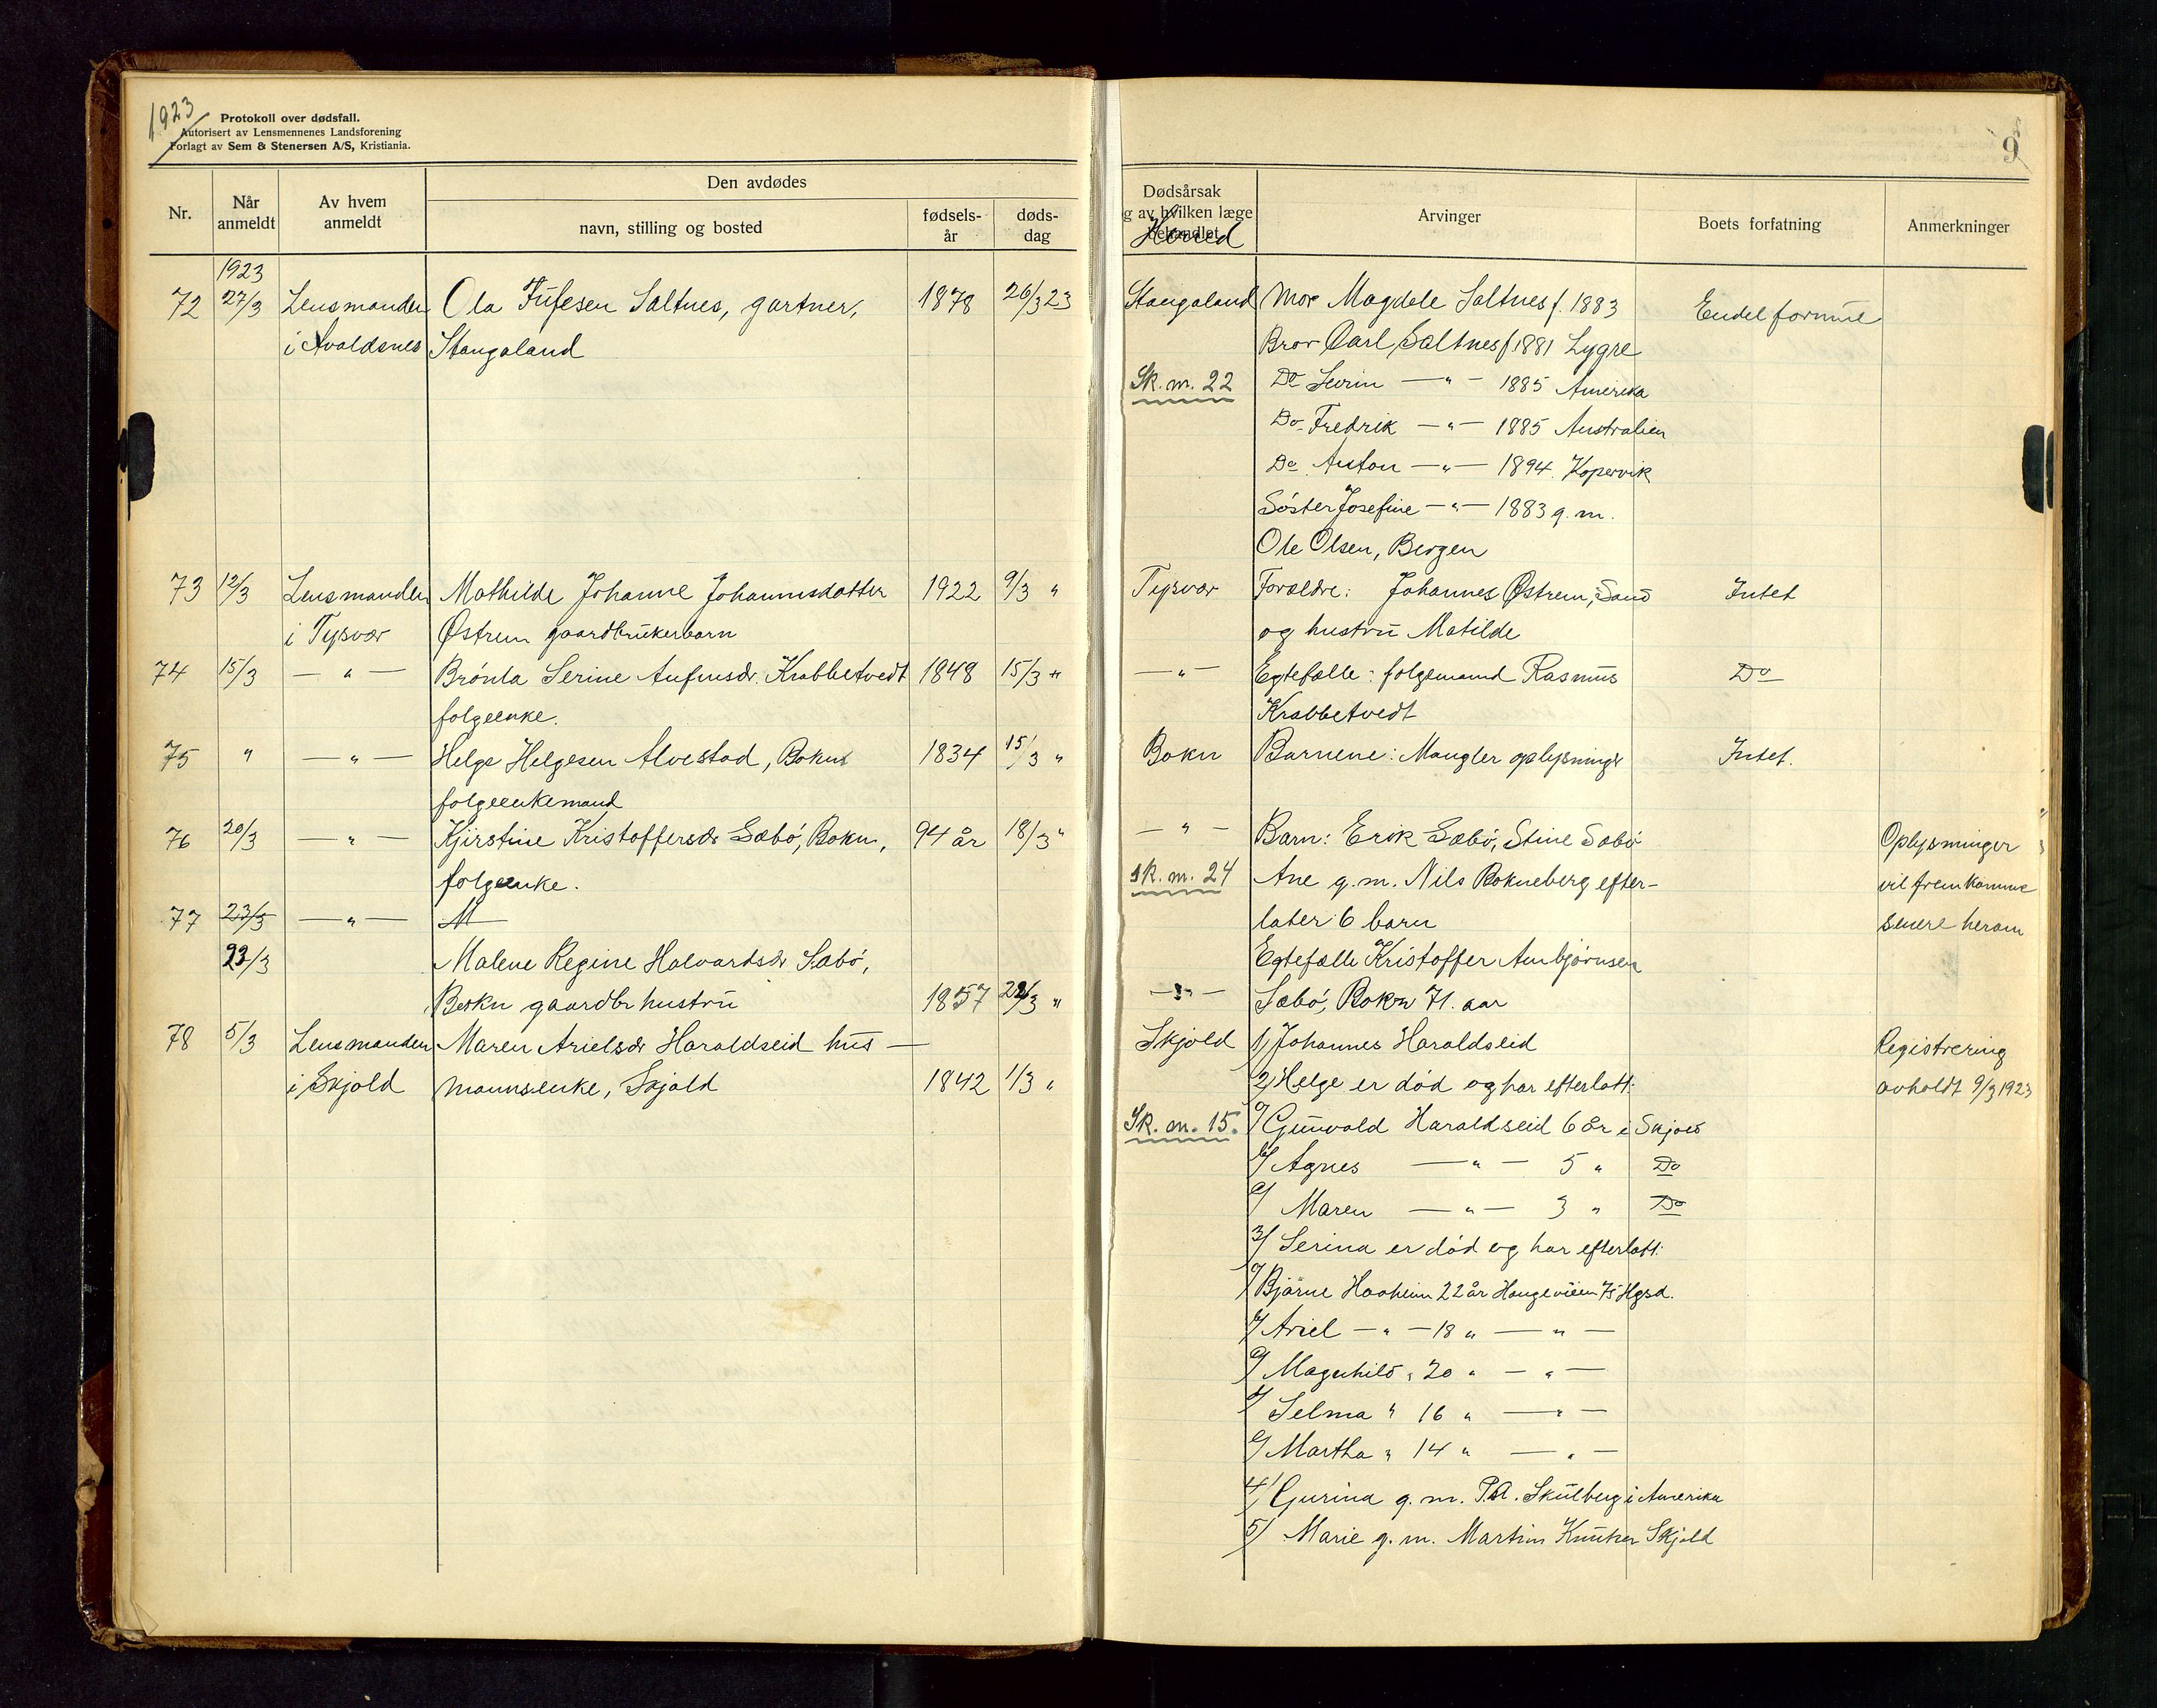 1923
Protokoll over dødsfall.
Autorisert av Lensmennenes Landsforening
Forlagt av Sem & Stenersen A/S, Kristiania.
Nr.
Når anmeldt
Av hvem anmeldt
Den avdødes
navn, stilling og bosted
fødsels-år
døds-dag
1923
72 27/3 Lensmanden Ola Tufesen Saltnes, gartner, 1878 26/3 23
i Avaldsnes Stangaland
73 12/3 Lensmanden Mathilde Johanne Johannesdatter 1922 9/3 "
i Tysvær Østrem gaardbrukerbarn
74 15/3 — " — Brónla Serine Aufinsdr. Krabbetvedt 1848 15/3 "
folgeenke.
75 " — " — Helge Helgesen Alvestad, Bokn 1834 15/3 "
folgeenkemand
76 20/3 — " — Kjirstine Kristoffersdr Sæbó, Bokn, 94 år 18/3 "
folgeenke.
77 23/3 — " — M
23/3 Malene Regine Halvardsdr Sæbó,
Bokn gaardbr hustru 1857 22/3 "
78 5/3 Lensmanden Maren Arielsdr Haraldseid hus —
i Skjold mannsenke, Skjold 1842 1/3 "
9
Dødsårsak
og av hvilken læge
behandlet
Herred
Arvinger
Boets forfatning
Anmerkninger
Stangaland Mor Magdele Saltnes f. 1883 Endel formue
Bror Carl Saltnes f 1881 Lygre
Sk. m. 22 Do Sevrin — " — 1885 Amerika
Do Fredrik — " — 1885 Australien
Do Anton — " — 1894 Kopervik
Sóster Josefine — " — 1883 g. m.
Ole Olsen, Bergen
Tysvær Forældre: Johannes Østrem, Sand Intet
og hustru Matilde
— " — Egtefælle: folgemand Rasmus Do
Krabbetvedt
Bokn Barnene: Mangler oplysninger Intet.
— " — Barn: Erik Sæbó, Stine Sæbó Oplysninger
sk. m. 24 Ane g. m. Nils Bokneberg efter- vil fremkomme
later 6 barn senere herom
Egtefælle Kristoffer Ambjørnsen
— " — Sæbó, Bokn 71. aar
Skjold 1) Johannes Haraldseid Registrering
2) Helge er død og har efterlatt: avholdt 9/3 1923
Sk. m. 15. a/ Gunvald Haraldseid 6 år i Skjold
b/ Agnes — " — 5 " Do
c/ Maren — " — 3 " Do
3/ Serina er død og har efterlatt:
a/ Bjarne Haaheim 22 år Haugeveien 75 Hgsd.
b/ Ariel — " — 18 " — " —
c/ Magnhild " 20 " — " —
d/ Selma " 16 " — " —
e/ Martha " 14 " — " —
4/ Gurina g. m. P.A. Skulberg i Amerika
5/ Marie g. m. Martin Knutsen Skjold